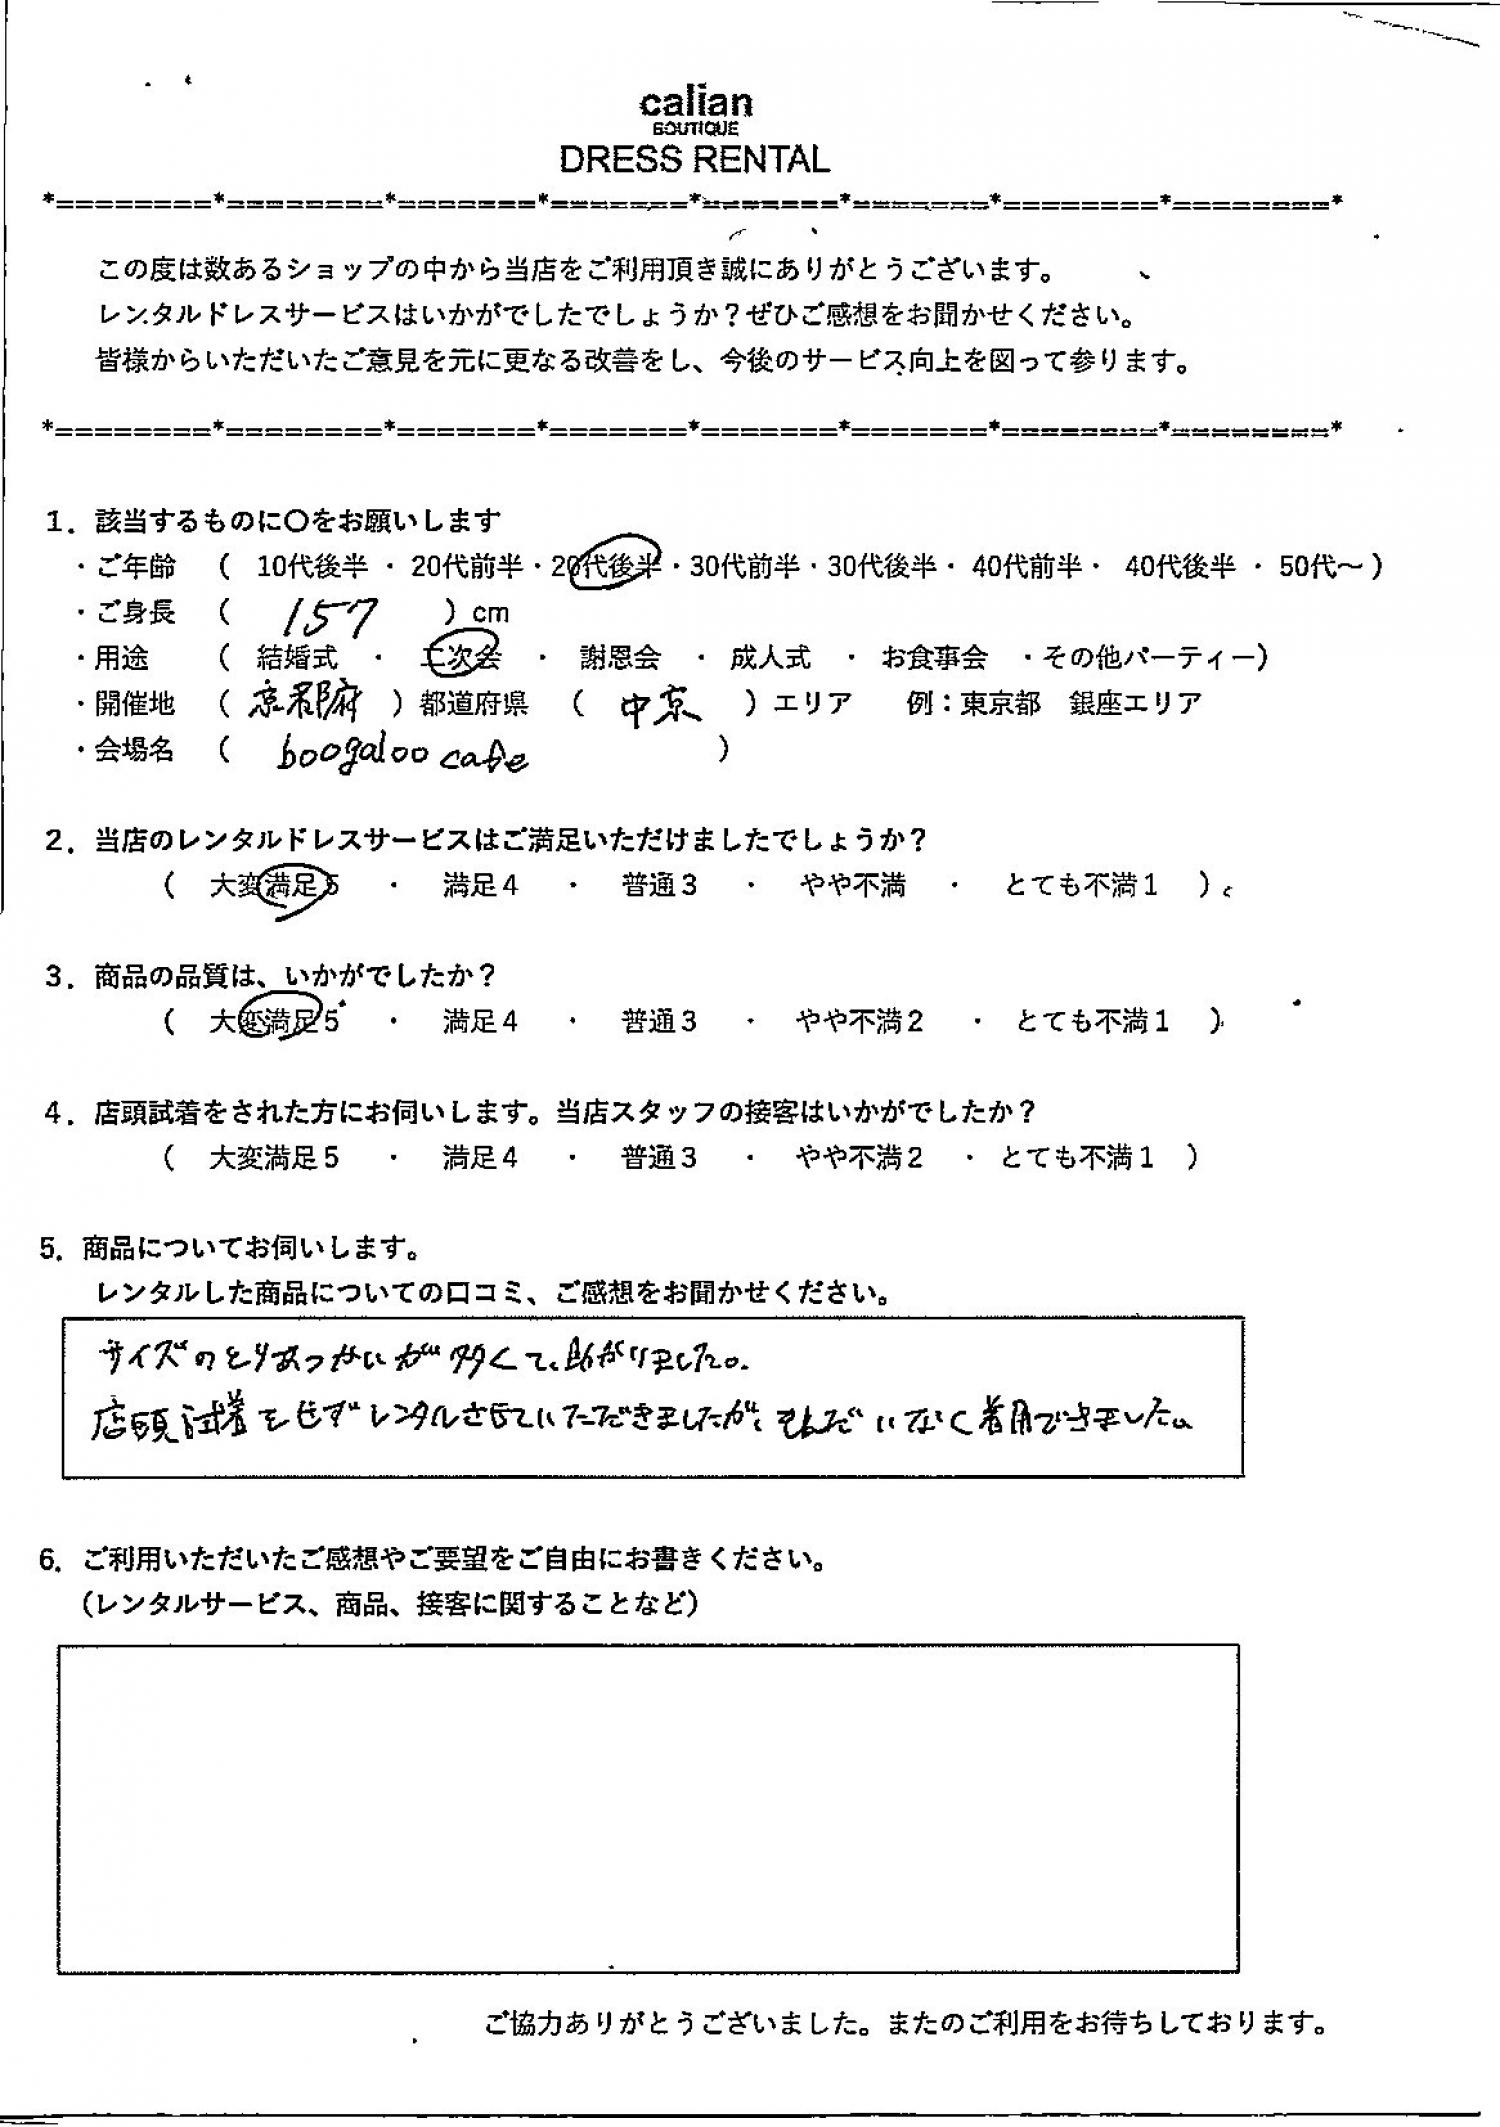 calian
BOUTIQUE
DRESS RENTAL
*========*========*=======*=======*=======*=======*========*========*
この度は数あるショップの中から当店をご利用頂き誠にありがとうございます。
レンタルドレスサービスはいかがでしたでしょうか？ぜひご感想をお聞かせください。
皆様からいただいたご意見を元に更なる改善をし、今後のサービス向上を図って参ります。
*========*========*=======*=======*=======*=======*========*========*
1．該当するものに〇をお願いします
・ご年齢 （ 10代後半 ・ 20代前半・20代後半・30代前半・30代後半・ 40代前半・ 40代後半 ・ 50代～ ）
・ご身長 （ 157 ）cm
・用途 （ 結婚式 ・ 二次会 ・ 謝恩会 ・ 成人式 ・ お食事会 ・その他パーティー）
・開催地 （ 京都府 ）都道府県 （ 中京 ）エリア 例：東京都 銀座エリア
・会場名 （ boogaloo cafe ）
2．当店のレンタルドレスサービスはご満足いただけましたでしょうか？
（ 大変満足5 ・ 満足4 ・ 普通3 ・ やや不満 ・ とても不満1 ）
3．商品の品質は、いかがでしたか？
（ 大変満足5 ・ 満足4 ・ 普通3 ・ やや不満2 ・ とても不満1 ）
4．店頭試着をされた方にお伺いします。当店スタッフの接客はいかがでしたか？
（ 大変満足5 ・ 満足4 ・ 普通3 ・ やや不満2 ・ とても不満1 ）
5．商品についてお伺いします。
レンタルした商品についての口コミ、ご感想をお聞かせください。
サイズのとりあつかいが多くて、助かりました。
店頭試着をせずレンタルさせていただきましたが、もんだいなく着用できました。
6．ご利用いただいたご感想やご要望をご自由にお書きください。
（レンタルサービス、商品、接客に関することなど）
ご協力ありがとうございました。またのご利用をお待ちしております。